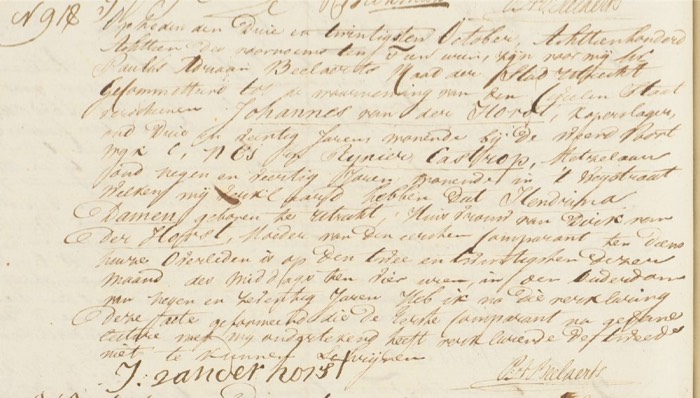 N 918
Op heden den Drie en twintigsten October, Achttienhonderd
Achttien des voormiddags ten Tien uren, zijn voor mij
Paulus Adriaan Beelaerts Raad der Stad Utrecht
gecommitteerd tot de waarneming van den Civielen Staat
verschenen Johannes van der Horst, koperslager,
oud Drie en dertig Jaren wonende bij de Weerd Poort
wyk L, N 65 en Reynier Castrop, Metzelaar
oud negen en veertig Jaren wonende in 't
welken mij verklaard hebben dat Hendrina
Damen geboren te Utrecht, Huisvrouw van Dirk van
der Horst, Moeder van den eersten Comparant ten
huize Overleden is op den twee en twintigsten dezer
maand des middags ten vier uren, in den Ouderdom
van negen en zeventig Jaren Heb ik na die verklaring
deze acte geformeerd die de Eerste Comparant na gedane
lecture met my ondgetekend heeft verklarende de tweede
niet te kunnen Schrijven
J: van der horst
PA Beelaerts